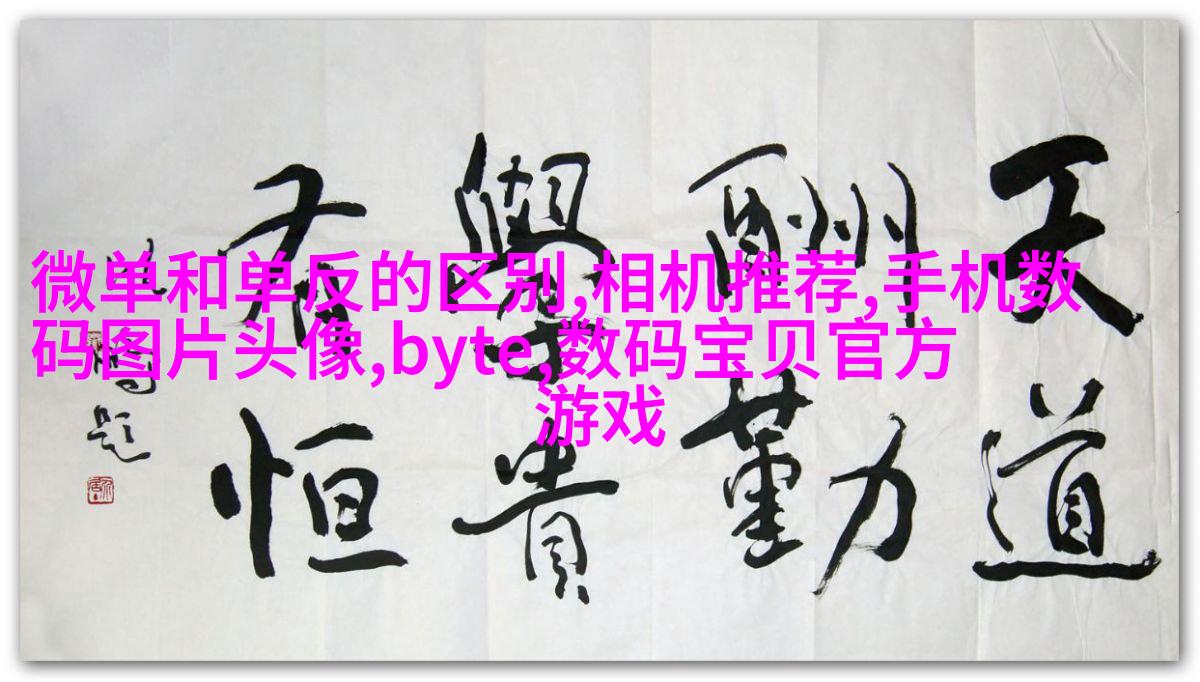 微单和单反的区别,相机推荐,手机数
码图片头像,byte,数码宝贝官方
游戏
天道
酬勤
學貴
有恒